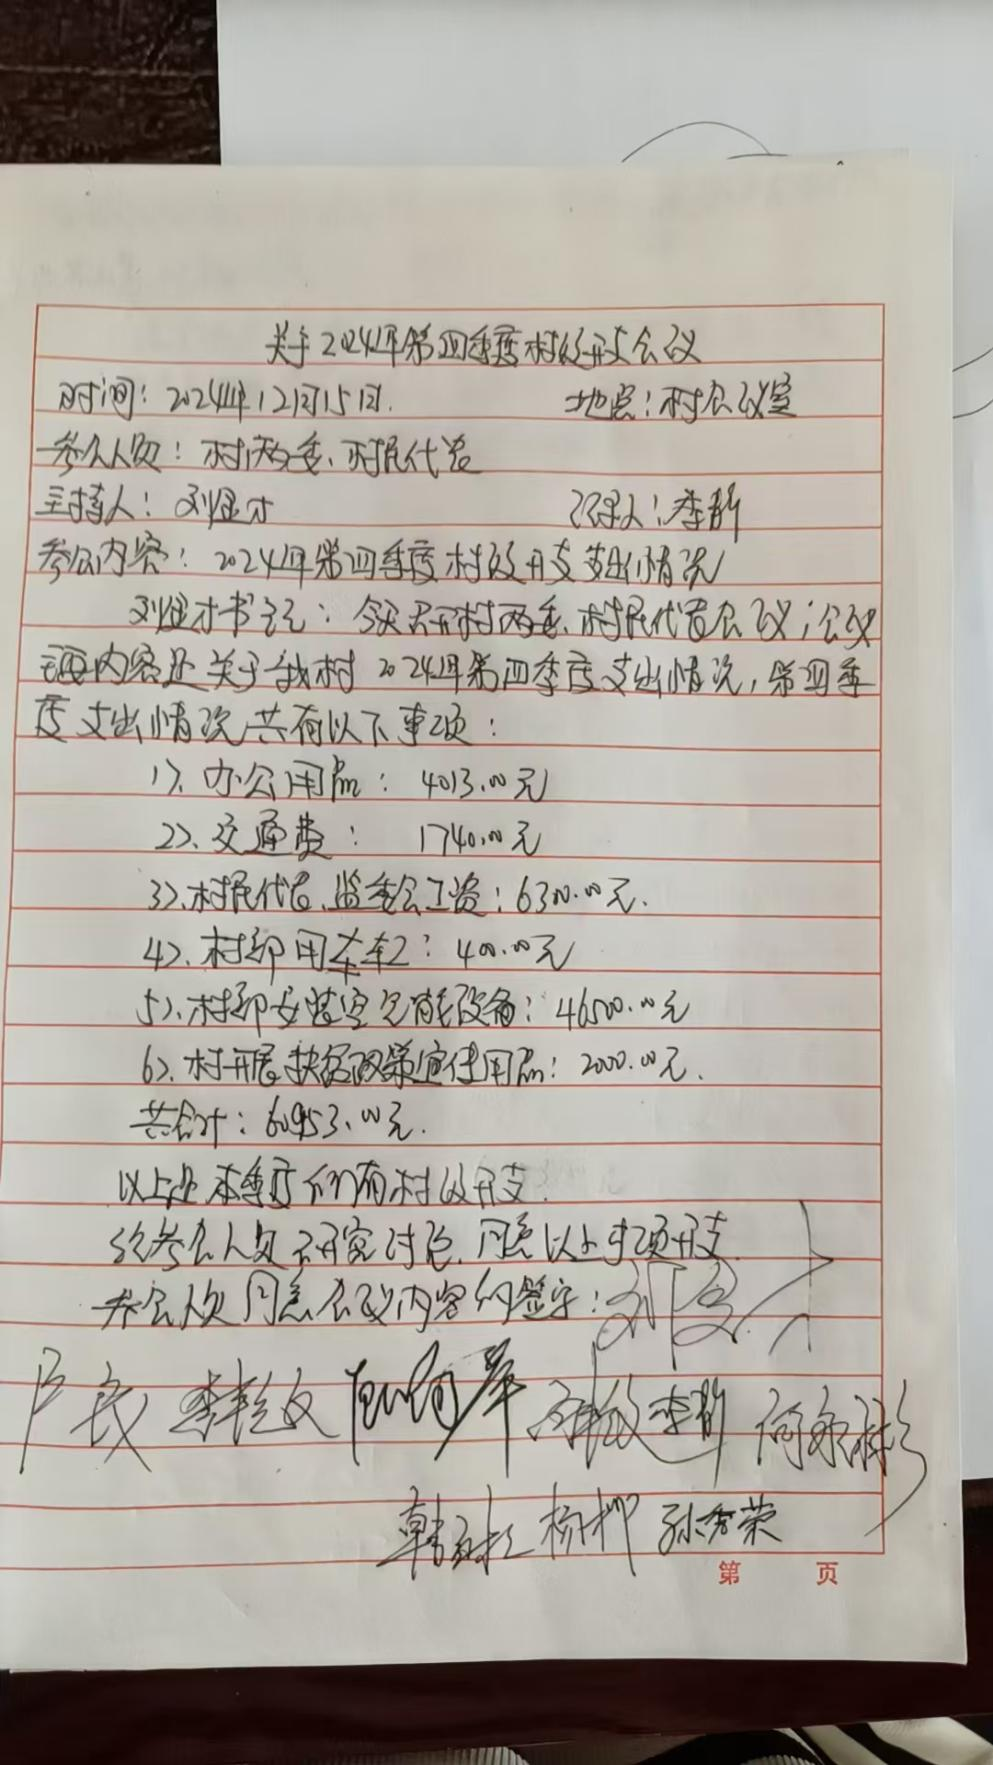 关于2024年第四季度村级开支会议
时间：2024年12月15日. 地点：村会议室
参会人员：村两委、村民代表
主持人：刘金才 记录人：李静
参会内容：2024年第四季度村级开支支出情况
刘金才书记：今天召开村两委、村民代表会议；会议
主要内容是关于我村2024年第四季度支出情况，第四季
度支出情况共有以下事项：
1>、办公用品：4013.00元
2>、交通费：1740.00元
3>、村民代表、监委会工资：6300.00元.
4>、村部用车车工：400.00元
5>、村部安装空气能设备：46500.00元
6>、村开展扶贫政策宣传用品：2000.00元.
共合计：60953.00元.
以上是本季度所有村级开支.
经参会人员研究讨论，同意以上事项开支.
参会人员同意会议内容的签字：刘金才
李静 何永彬
杨柳 孙秀荣
第 页